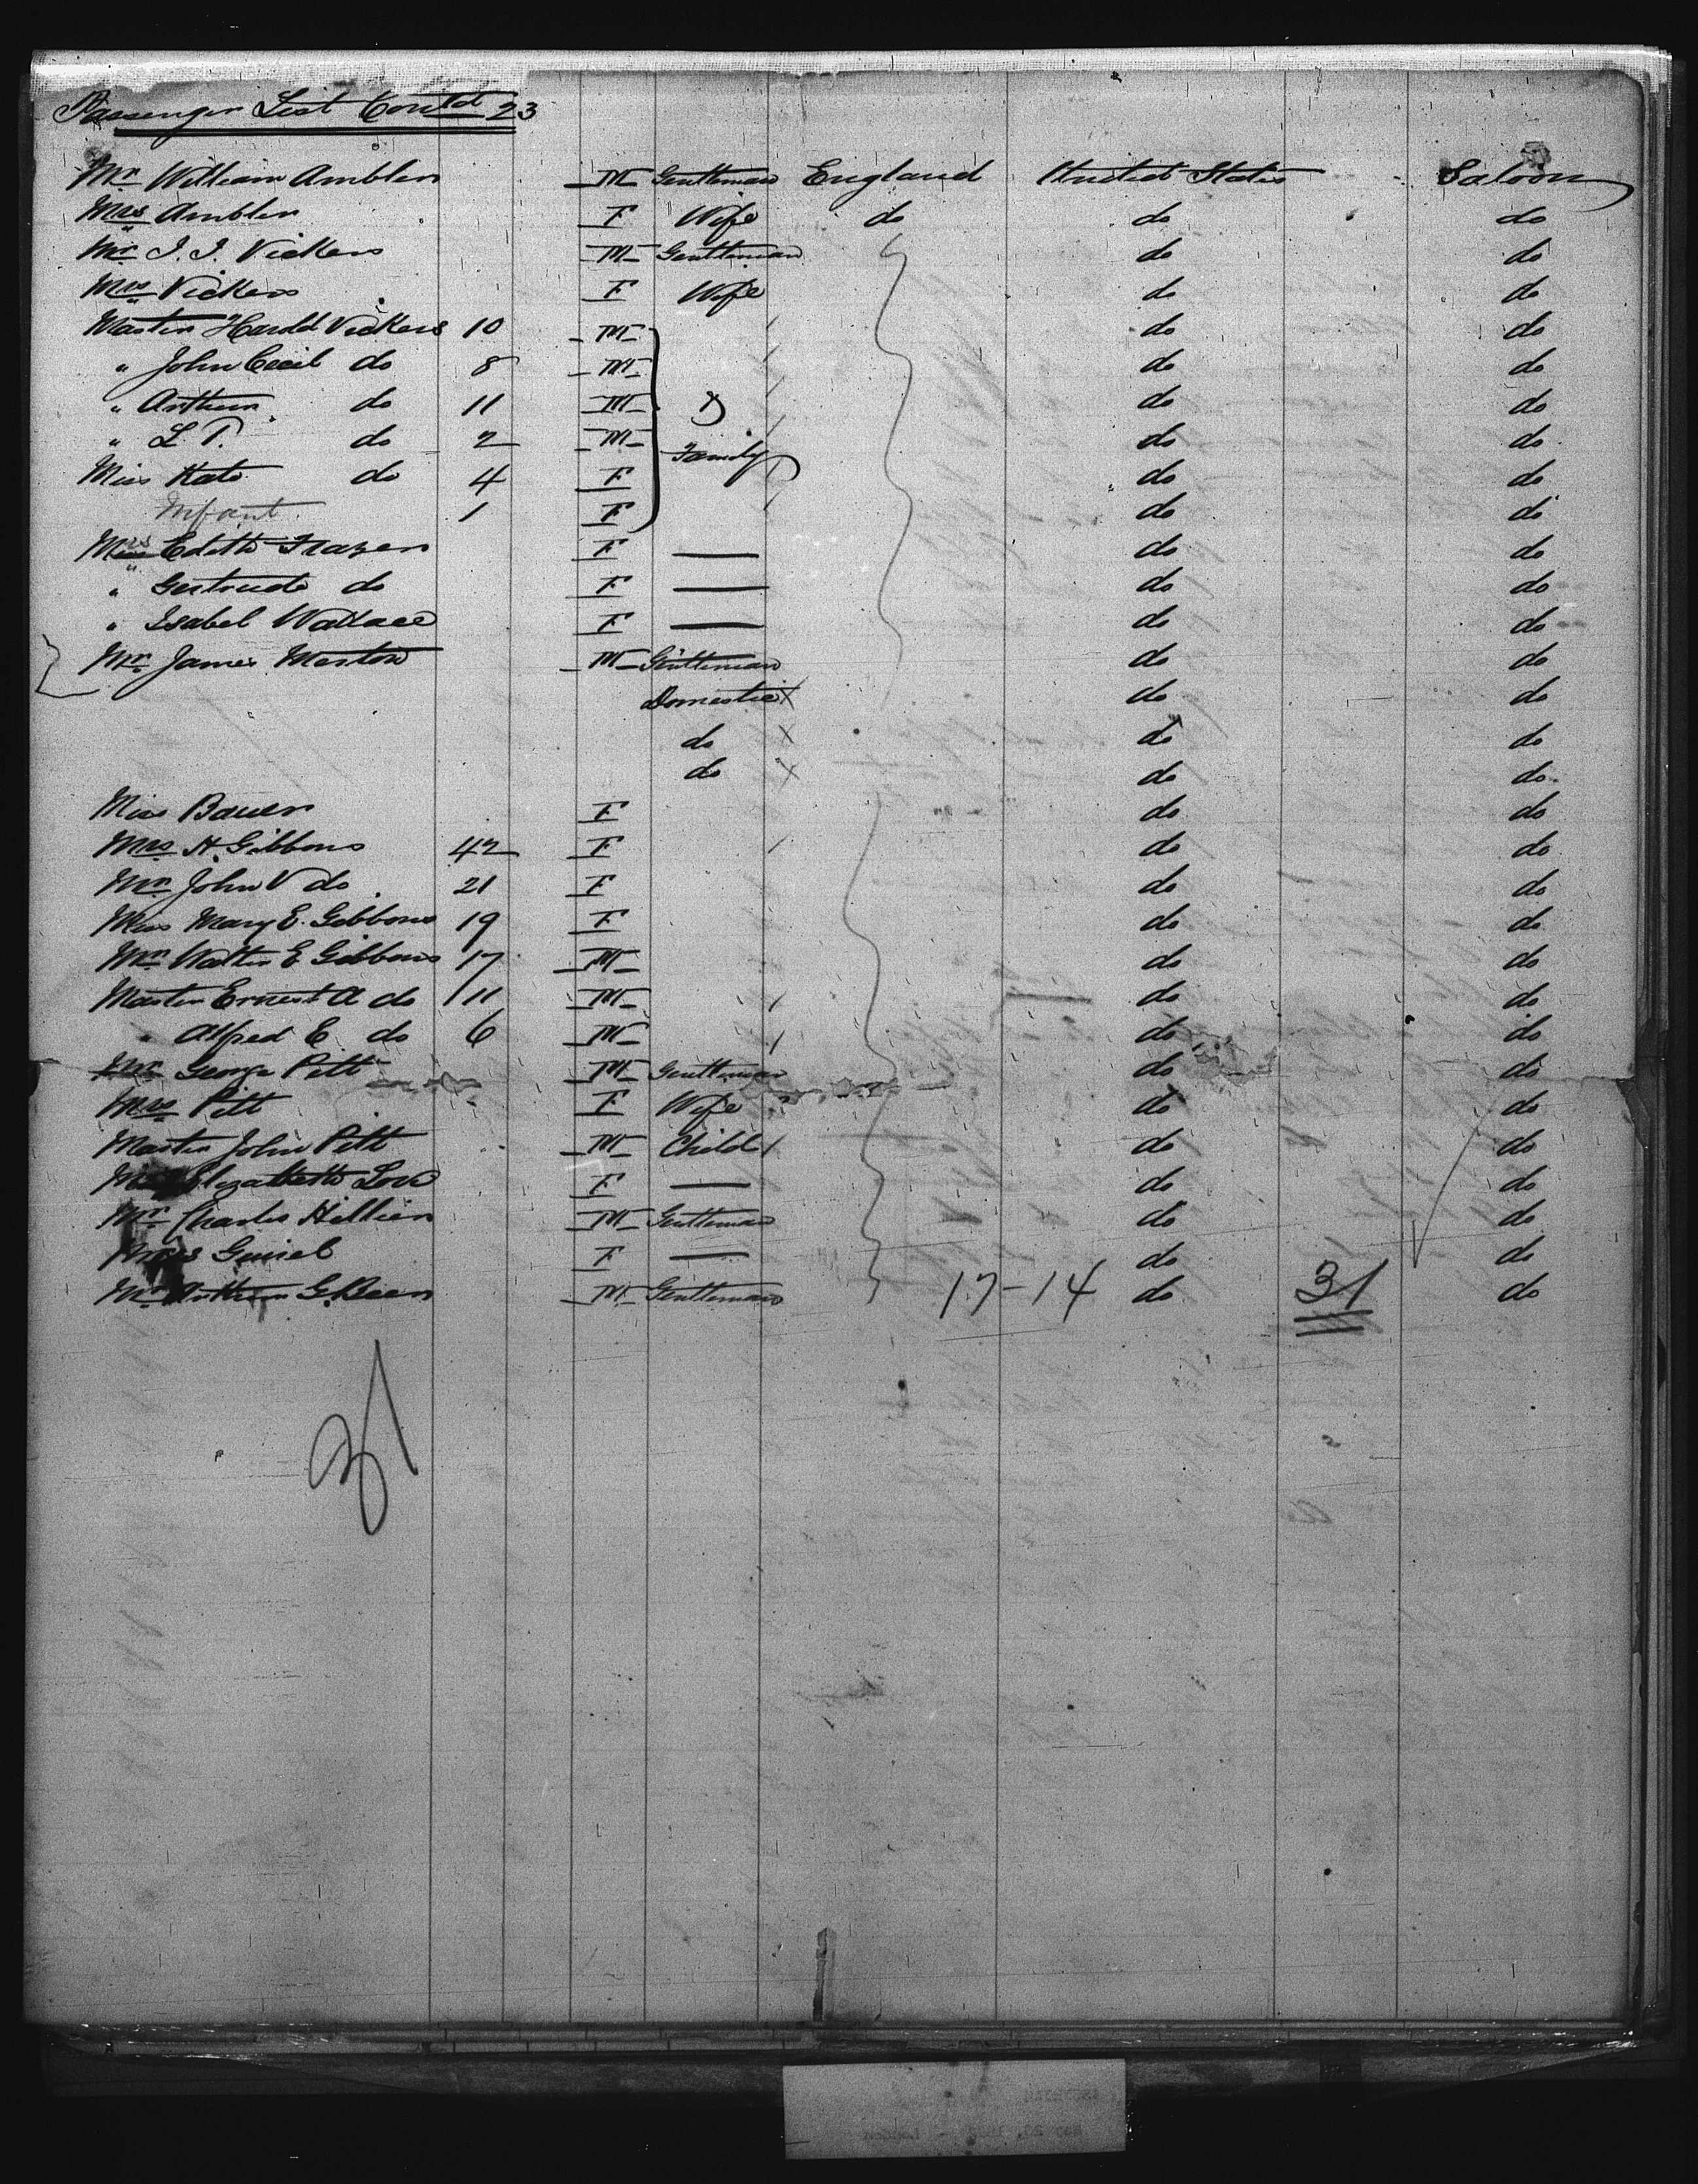 Passenger List Contd 23
Mr William Ambler M Gentleman England United States Saloon
Mrs Ambler F Wife do do do
Mr J. J. Vickers M Gentleman do do
Mrs Vickers F Wife do do
Master Harold Vickers 10 M do do
" John Cecil do 8 M do do
" Arthur do 11 M do do
" L. T. do 2 M Family do do
Miss Kate do 4 F do do
Infant 1 F do do
Edith Frazer F — do do
" Gertrude do F — do do
" Isabel Wallace F — do do
Mr James Marton M Gentleman do do
Domestic X do do
do X do do
do X do do
Miss Bauer F do do
Mrs H. Gibbons 42 F do do
Mr John V do 21 F do do
Miss Mary E. Gibbons 19 F do do
Mr Walter E Gibbons 17 M do do
Master Ernest A do 11 M do do
" Alfred E do 6 M do do
Mr George Pitt M Gentleman do do
Mrs Pitt F Wife do do
Master John Pitt M Child do do
Elizabeth F — do do
Mr Charles Hillier M Gentleman do do
F — do do
Mr Arthur G. Beer M Gentleman 17-14 do 31 do
31